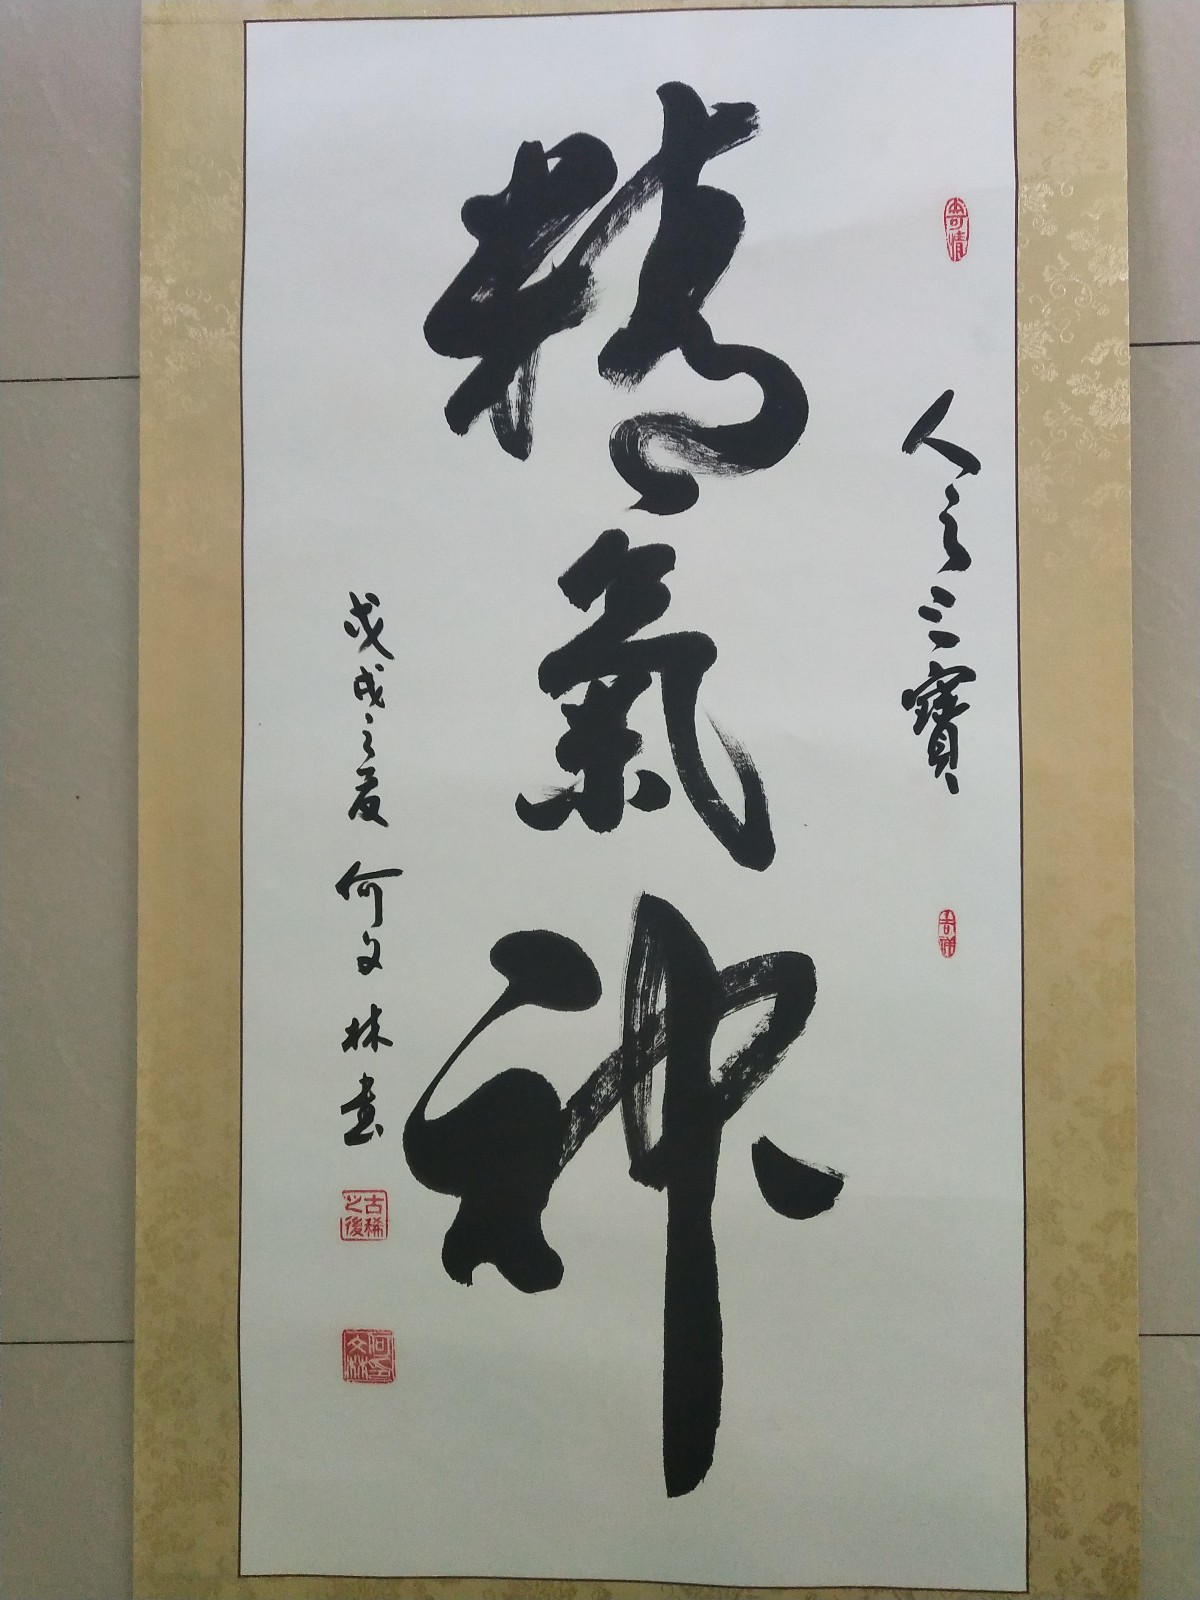 寄情
人之三寶
精氣神
戊戌之夏 何文林書
古稀之後
何文林印